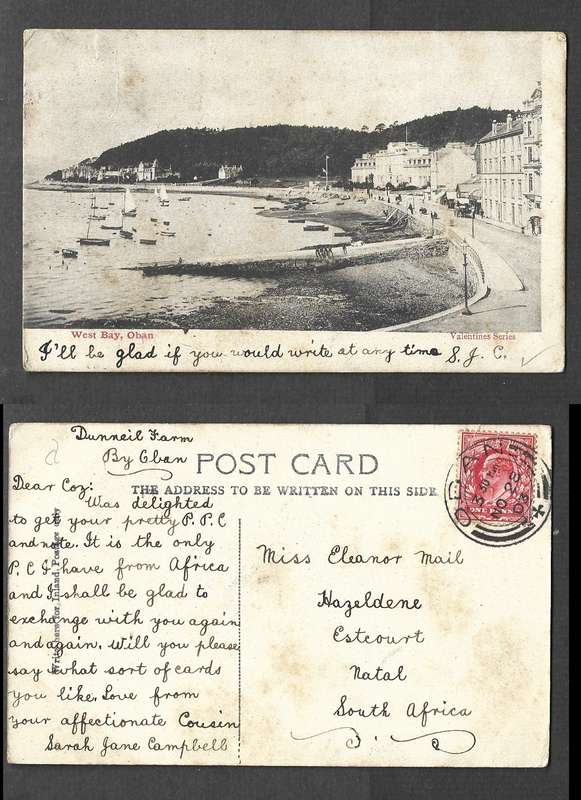 West Bay, Oban
Valentines Series
I'll be glad if you would write at any time S. J. C.
Dunneil Farm
By Oban
POST CARD
THE ADDRESS TO BE WRITTEN ON THIS SIDE
Dear Coz:
Was delighted
to get your pretty P. P. C
and note. It is the only
P. C I have from Africa
and I shall be glad to
exchange with you again
and again. Will you please
say what sort of cards
you like. Love from
your affectionate Cousin
Sarah Jane Campbell
Write here for Inland Postage only
Miss Eleanor Mail
Hazeldene
Estcourt
Natal
South Africa
ONE PENNY
OBAN
NO 25
03